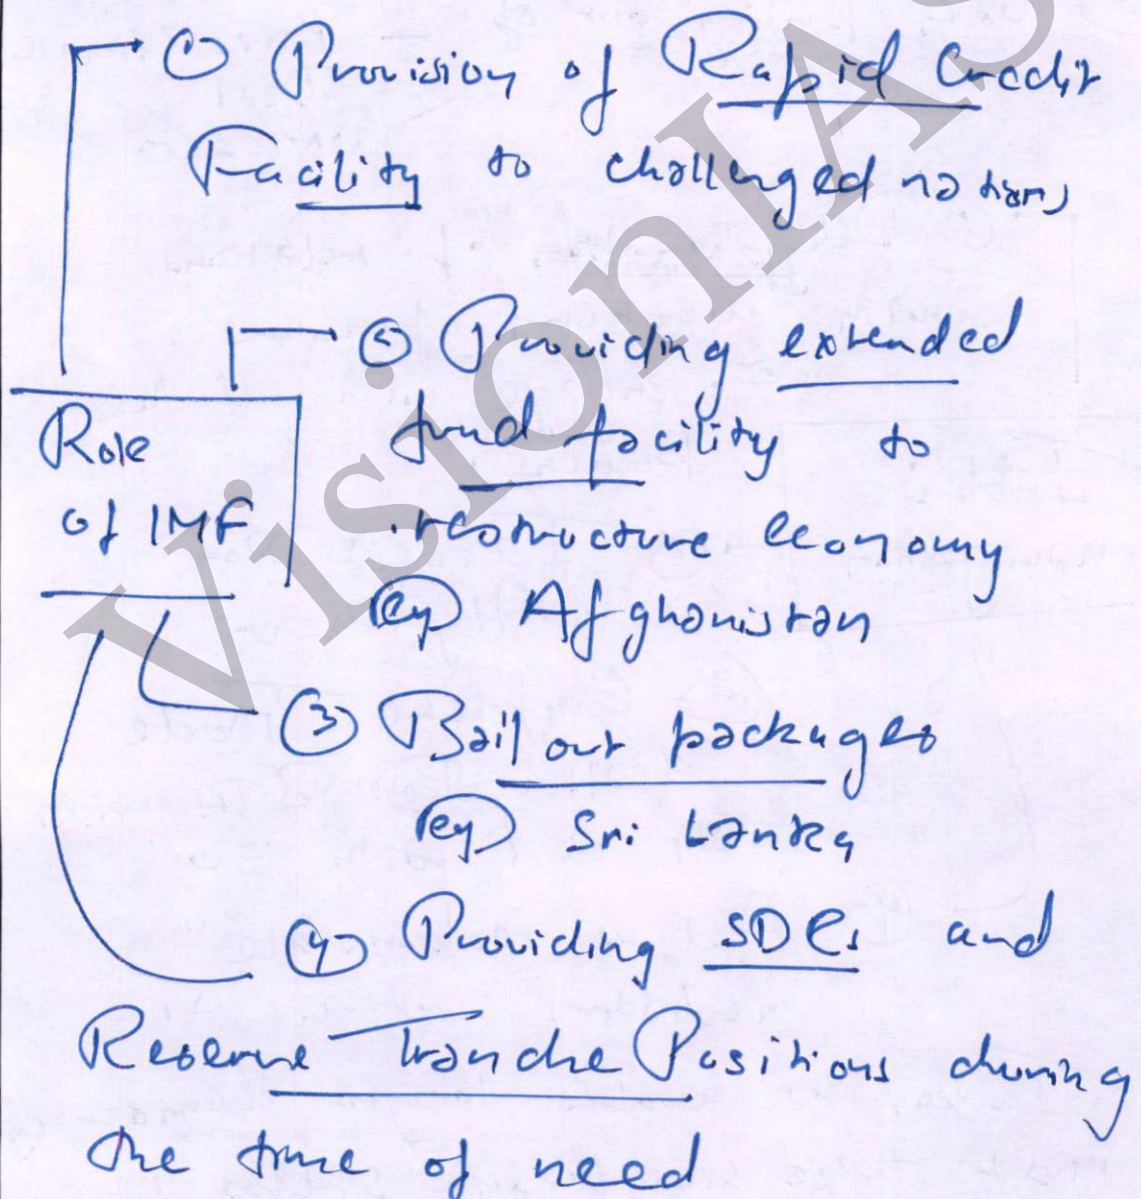 ① Provision of Rapid Credit
Facility to challenged nations
② Providing extended
Role
fund facility to
of IMF
restructure economy
(eg) Afghanistan
③ Bail out packages
(eg) Sri Lanka
④ Providing SDRs and
Reserve Tranche Positions during
the time of need
VisionIAS